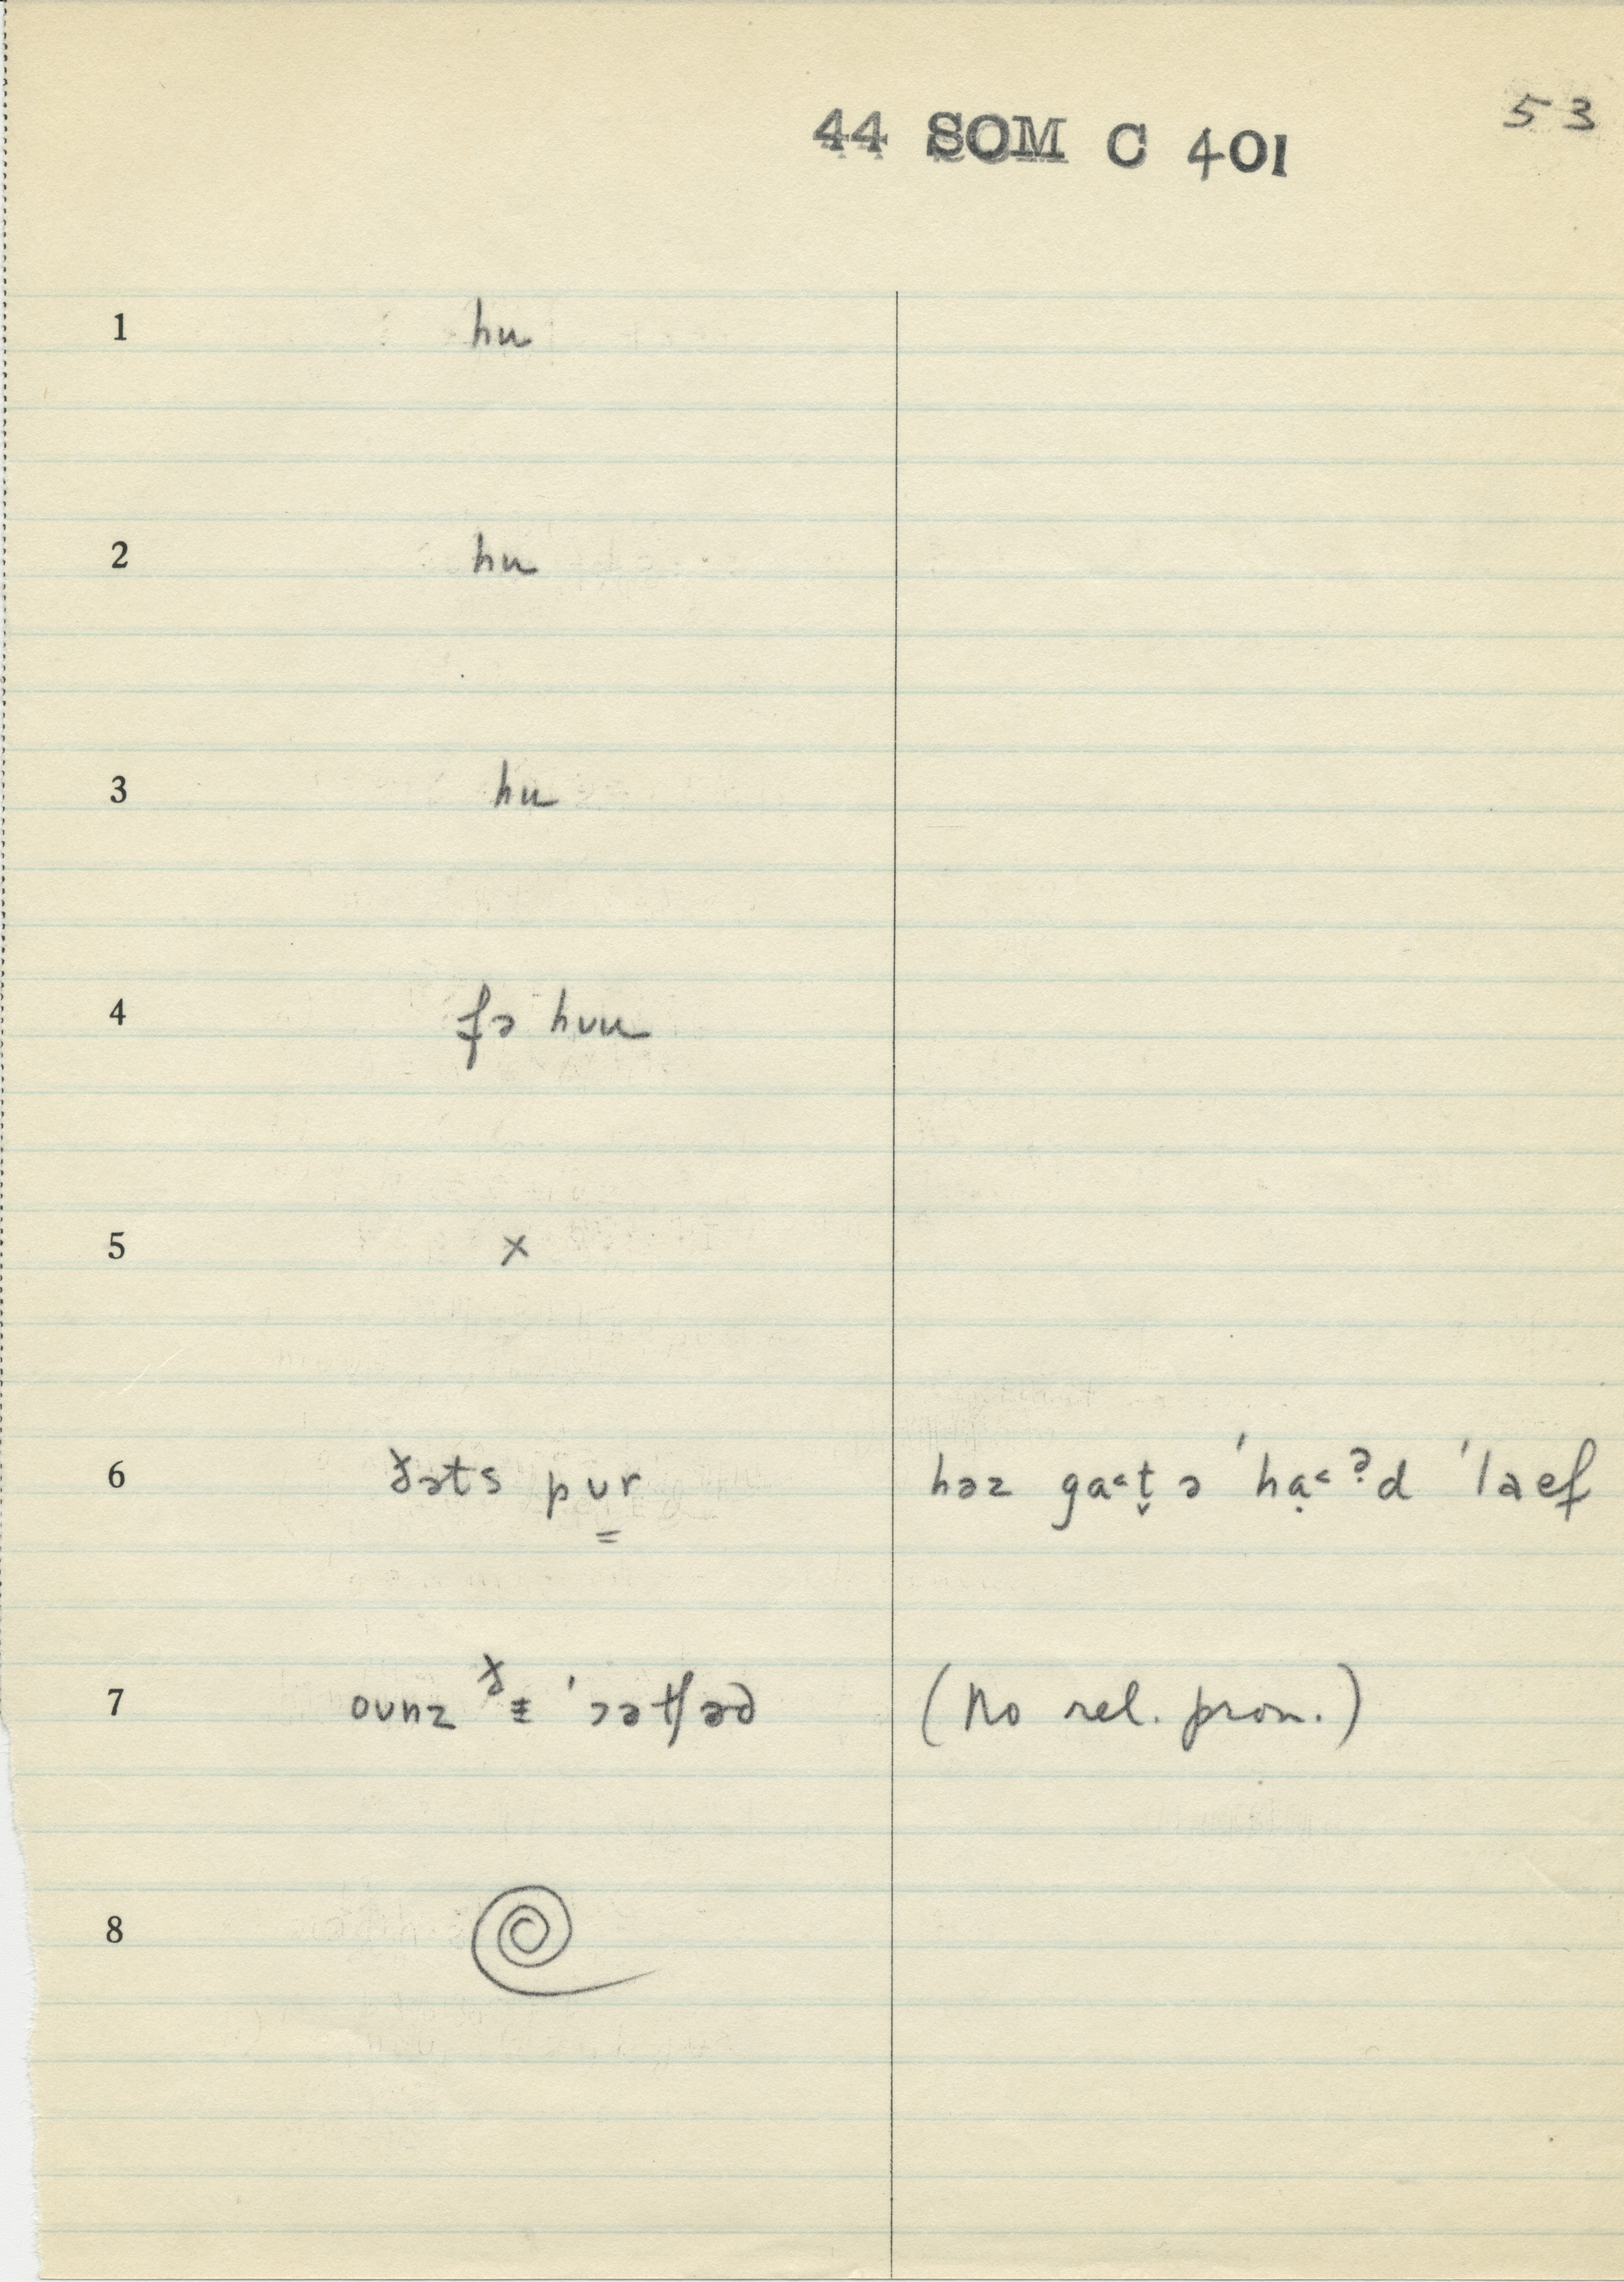 44 SOM C 401
53
1 hu
2 hu
3 hu
4 fə hʊu
5 x
6 ðəts pʊ̳r həz ga˂t̬ ə ˈhạ˂ˀd ˈlaef
7 oʊnz ˈɔətʃəd (no rel. pron.)
8